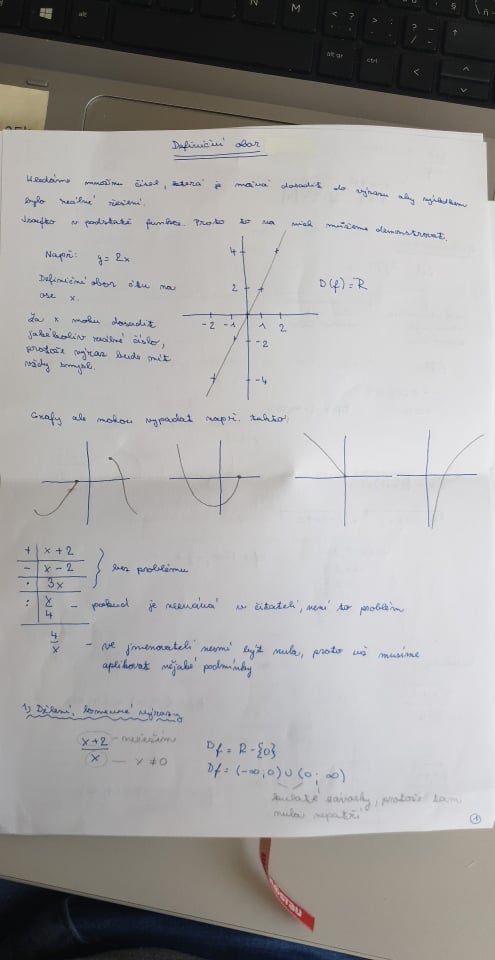 Definiční obor
Hledáme množinu čísel, která je možná dosadit do výrazu aby výsledkem
bylo reálné řešení.
Jsou to v podstatě funkce. Proto to na nich můžeme demonstrovat.
Např: y = 2x
Definiční obor čtu na
ose x.
Za x mohu dosadit
jakékoliv reálné číslo,
protože výraz bude mít
vždy smysl.
4
2
-2 -1 1 2
-2
-4
D(f) = R
Grafy ale mohou vypadat např. takto:
+ x + 2
- x - 2
· 3x
} bez problému
: x/4 - pokud je neznámá v čitateli, není to problém
4/x - ve jmenovateli nesmí být nula, proto už musíme
aplikovat nějaké podmínky
1) Dělení, lomené výrazy
x+2 - neřeším
x — x ≠ 0
Df = R - {0}
Df = (-∞; 0) ∪ (0; ∞)
kulaté závorky, protože tam
nula nepatří
1
alt
alt gr
ctrl